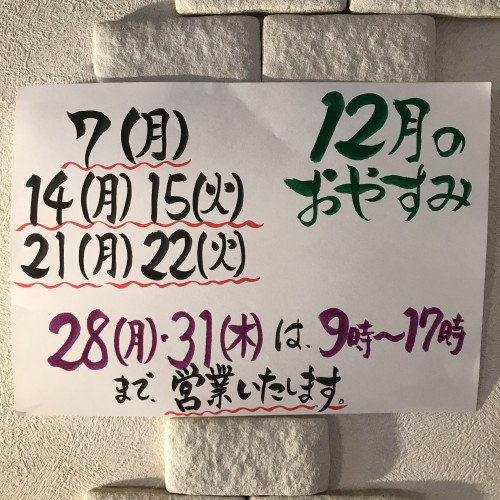 12月の
おやすみ
7(月)
14(月) 15(火)
21(月) 22(火)
28(月)・31(木)は、9時〜17時
まで、営業いたします。